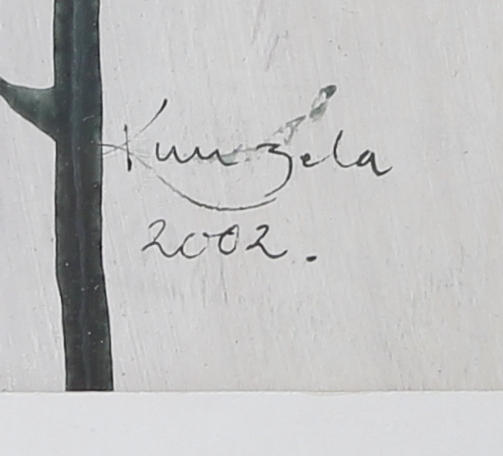 Kunzela
2002.